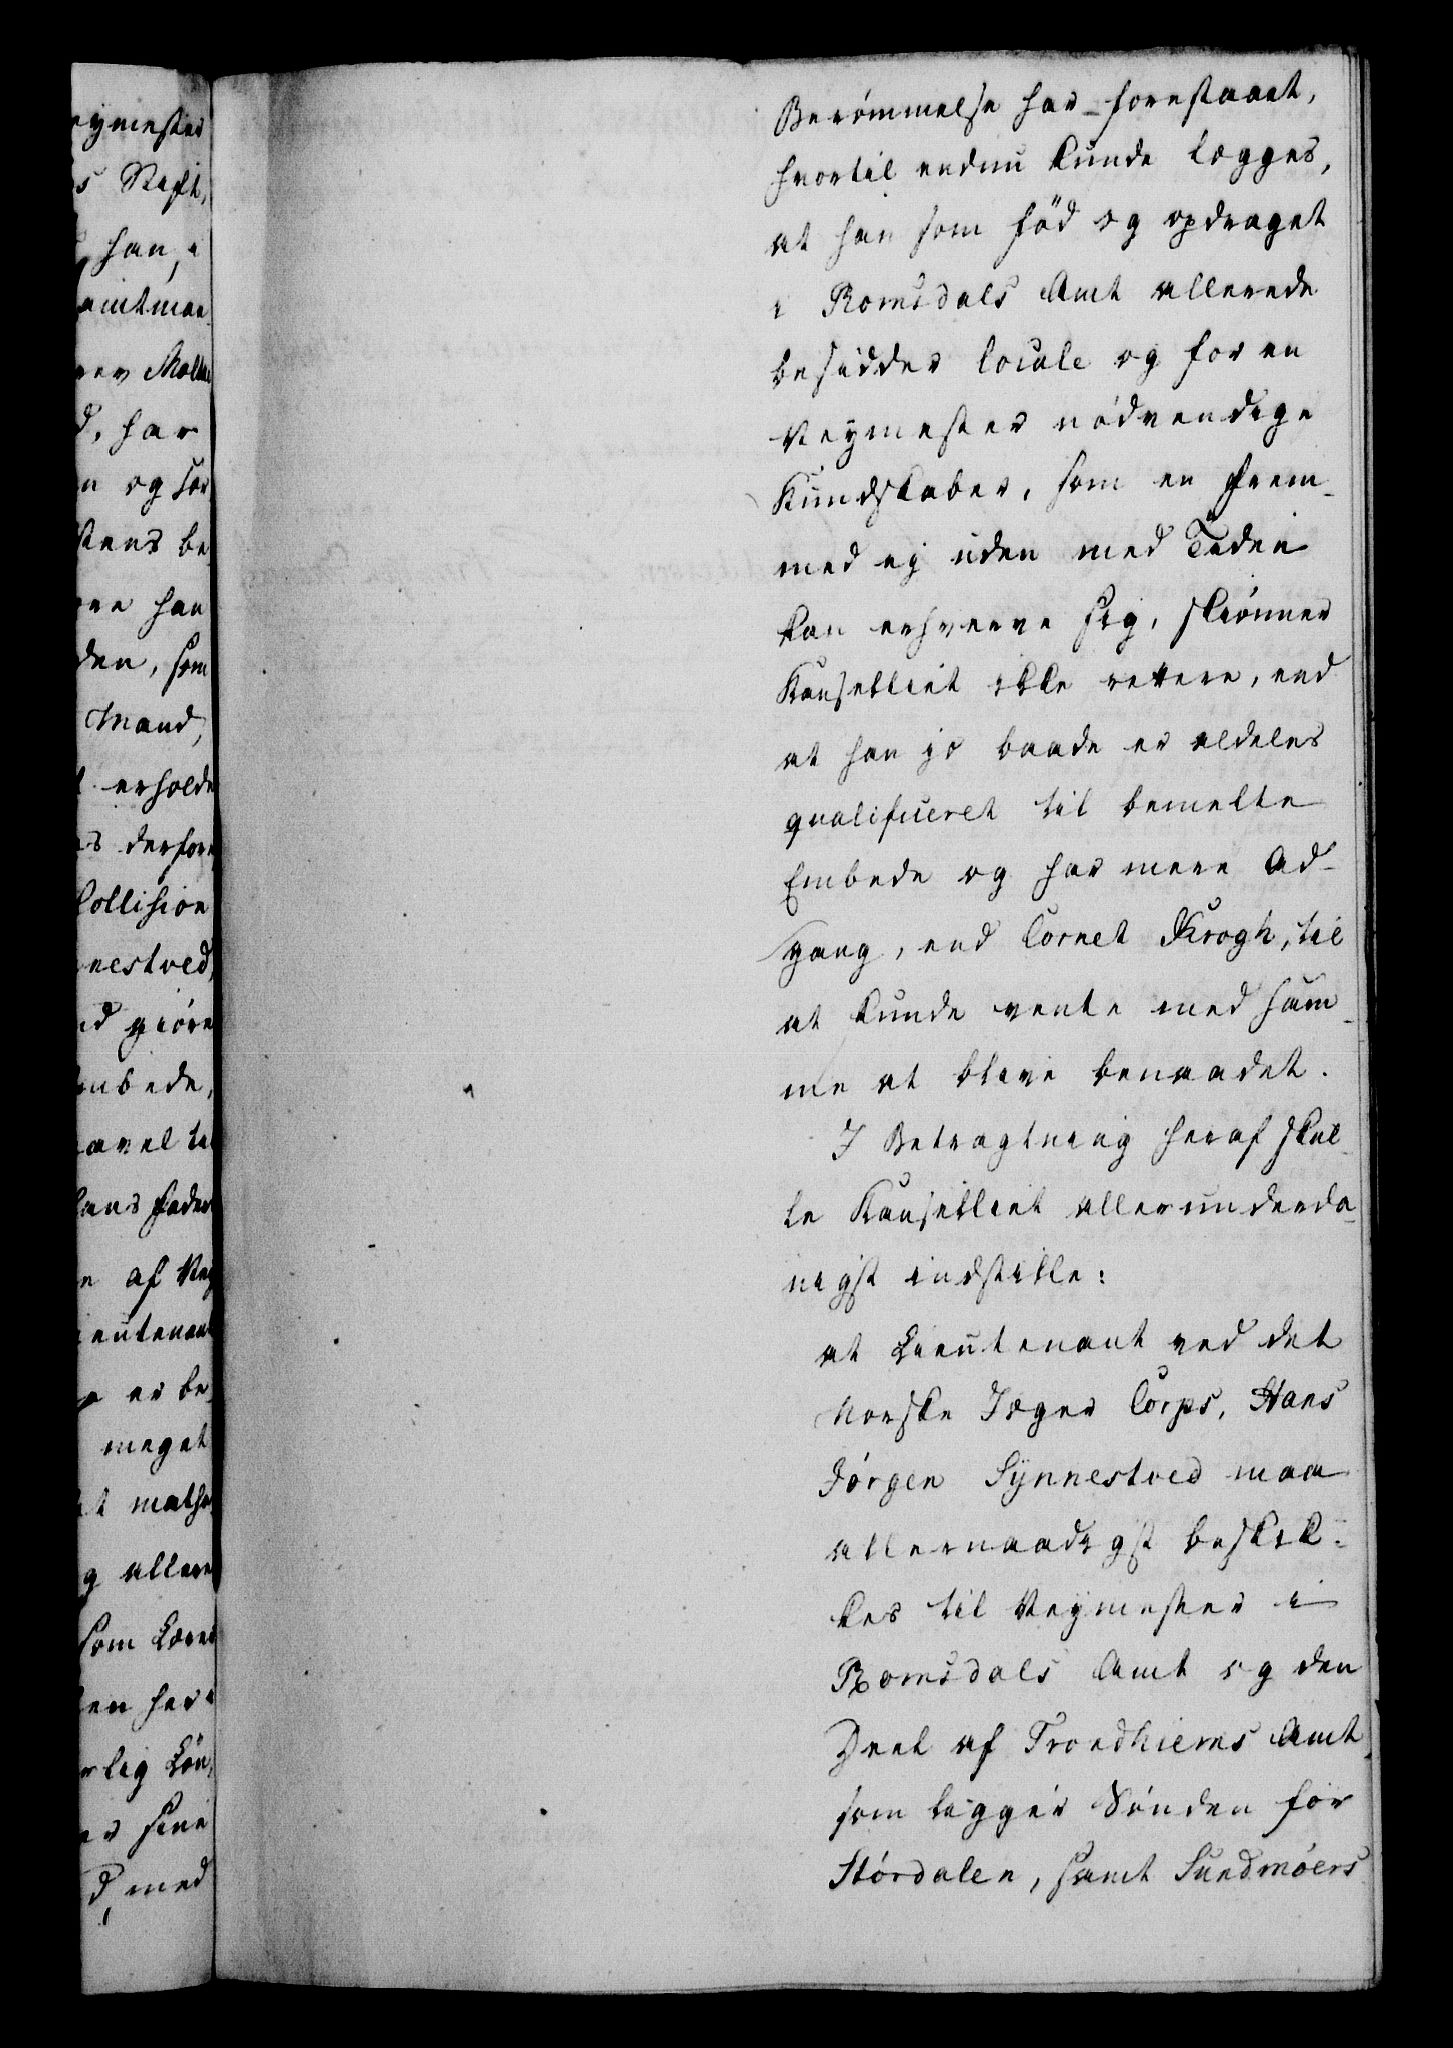 eymester
s Stift,
han, i
amtman-
rev Molt
d, har
n og for
stens be
ere han
den, som
Mand,
t erholde
s derfore
Collision
nestved,
d giöre
mbede,
avel til
ans Fader
n af Vey
ieutenant
er be-
meget
t mathe
g allere
som Lærer
en her i
rlig Løn,
er sine
d, med
Berømmelse har forestaaet,
hvortil endnu kunde lægges,
at han som fød og opdraget
i Romsdals Amt allerede
besidder locale og for en
Veymester nødvendige
Kundskaber, som en frem-
med ej uden med Tiden
kan erhverve sig, skiønner
Kanselliet ikke rettere, end
at han jo baade er aldeles
qualificeret til bemelte
Embede og har mere Ad-
gang, end Cornet Krogh, til
at kunde vente med sam-
me at blive benaadet.
I Betragtning heraf skul-
le Kanselliet allerunderda-
nigst indstille:
at Lieutenant ved det
Norske Jæger Corps, Hans
Jørgen Synnestved maa
allernaadigst beskik-
kes til Veymester i
Romsdals Amt og den
Deel af Trondhiems Amt
som ligger Sønden for
Størdalen, samt Sundmøers